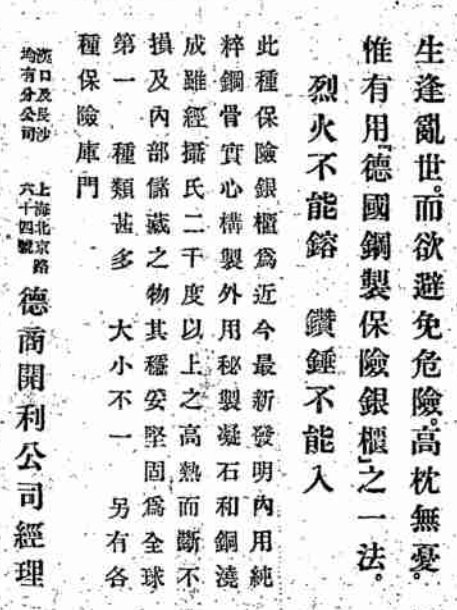 生逢亂世。而欲避免危險。高枕無憂。
惟有用『德國鋼製保險銀櫃』之一法。
烈火不能鎔　鑽錘不能入
此種保險銀櫃爲近今最新發明內用純
粹鋼骨實心構製外用秘製凝石和鋼澆
成雖經攝氏二千度以上之高熱而斷不
損及內部儲藏之物其穩妥堅固爲全球
第一　種類甚多　大小不一　另有各
種保險庫門
上海北京路
六十四號
德商開利公司經理
漢口及長沙
均有分公司